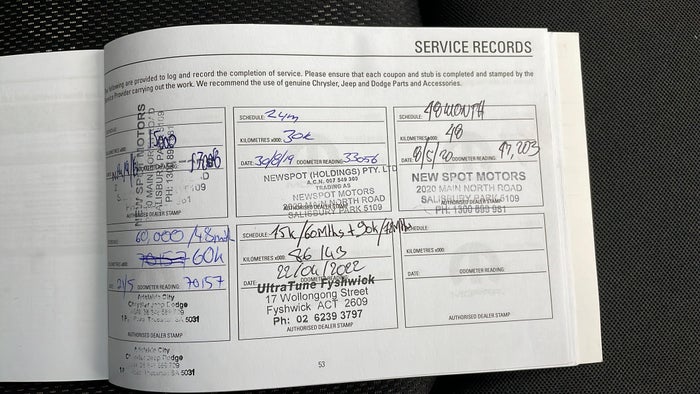 SERVICE RECORDS
following are provided to log and record the completion of service. Please ensure that each coupon and stub is completed and stamped by the
Provider carrying out the work. We recommend the use of genuine Chrysler, Jeep and Dodge Parts and Accessories.
NEW SPOT MOTORS
MAIN NORTH ROAD
SALISBURY PARK 5109
AUTHORISED DEALER STAMP
SCHEDULE: 24m
KILOMETRES x000: 30k
DATE: 30/8/19 ODOMETER READING: 33056
NEWSPOT (HOLDINGS) PTY. LTD
A.C.N. 007 549 309
TRADING AS
NEWSPOT MOTORS
MAIN NORTH ROAD
SALISBURY PARK 5109
SCHEDULE: 48 MONTH
KILOMETRES x000: 48
DATE: 8/5/20 ODOMETER READING: 47,203
NEW SPOT MOTORS
2020 MAIN NORTH ROAD
SALISBURY PARK 5109
AUTHORISED DEALER STAMP
PH: 1300 890 981
60,000/48
70157 60k
ODOMETER READING: 70157
Adelaide City
Chrysler Jeep Dodge
5031
AUTHORISED DEALER STAMP
Adelaide City
Dodge
SA 5031
SCHEDULE: 75k/60Mths + 90k/72Mths
KILOMETRES x000: 86143
DATE: 22/04/2022
UltraTune Fyshwick
17 Wollongong Street
Fyshwick ACT 2609
Ph: 02 6239 3797
AUTHORISED DEALER STAMP
SCHEDULE:
KILOMETRES x000:
DATE: ODOMETER READING:
AUTHORISED DEALER STAMP
53